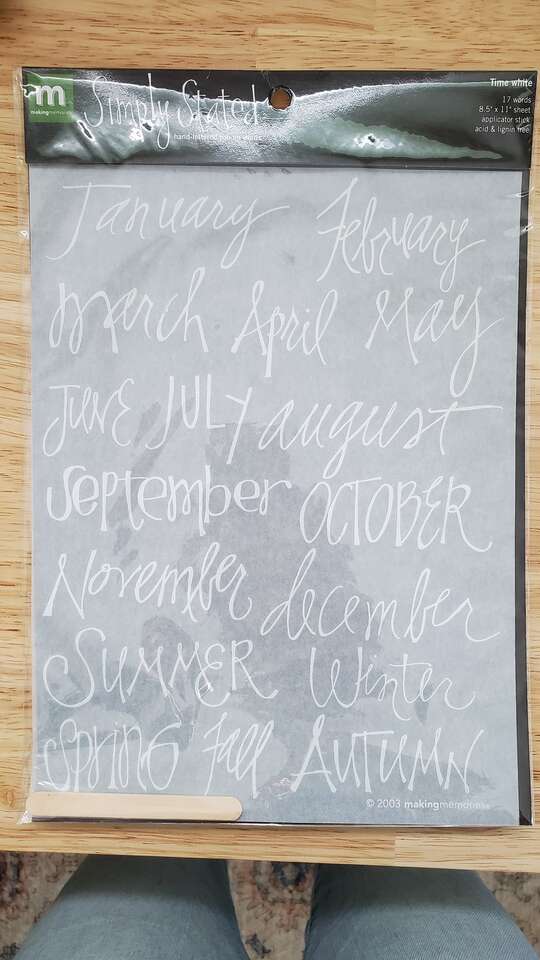 m
makingmemories
Simply Stated
hand-lettered rub-on words
Time white
17 words
8.5" x 11" sheet
applicator stick
acid & lignin free
January February
march April May
JUNE JULY august
September OCTOBER
November december
SUMMER Winter
SPRING Fall AUTUMN
© 2003 makingmemories